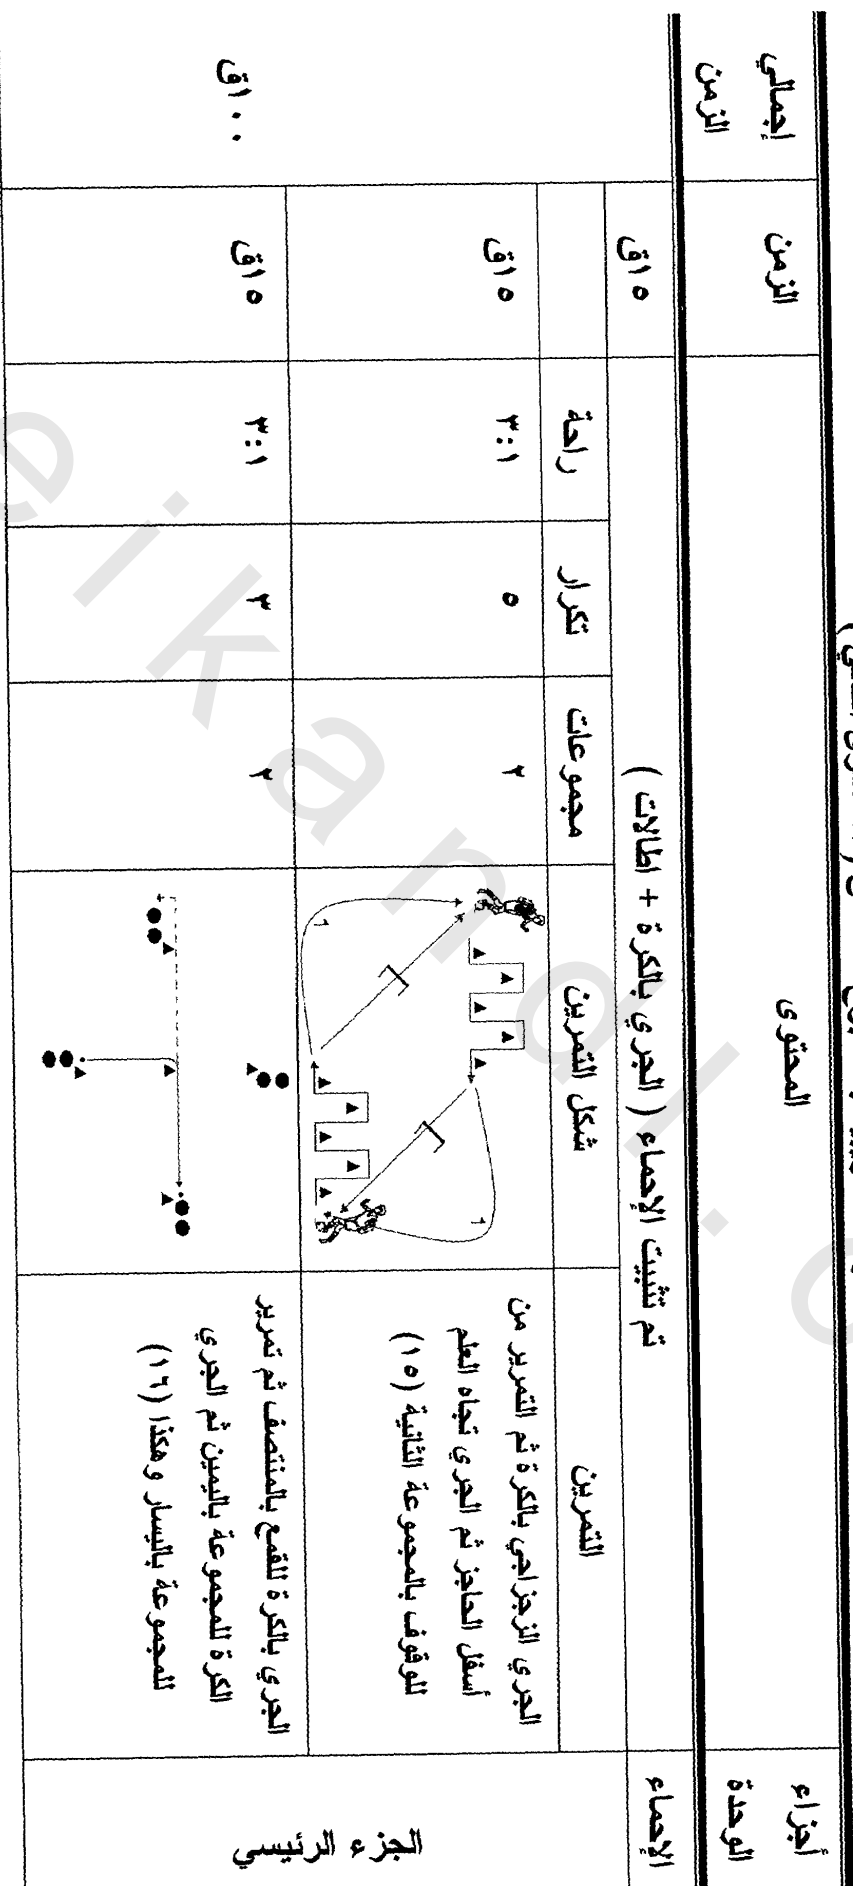 أجزاء
الوحدة
المحتوى
الزمن
إجمالي
الزمن
الإحماء
تم تثبيت الإحماء ( الجري بالكرة + اطالات )
١٥ق
الجزء الرئيسي
التمرين
شكل التمرين
مجموعات
تكرار
راحة
الجري الزجزاجي بالكرة ثم التمرير من
أسفل الحاجز ثم الجري تجاه العلم
للوقوف بالمجموعة الثانية (١٥)
1
1
٢
٥
٣:١
١٥ق
الجري بالكرة للقمع بالمنتصف ثم تمرير
الكرة للمجموعة باليمين ثم الجري
للمجموعة باليسار وهكذا (١٦)
٢
٣
٣:١
١٥ق
١٠٠ق